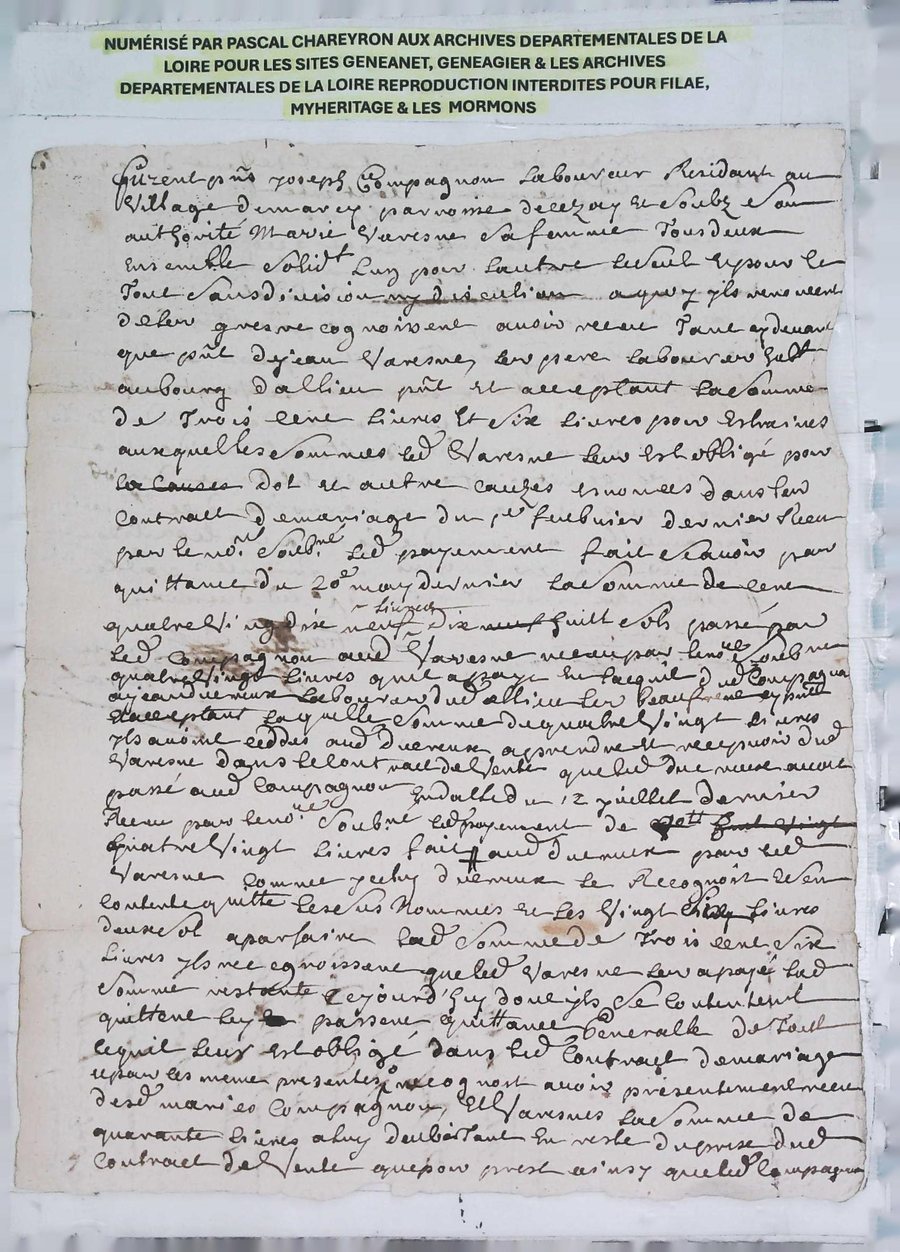 NUMÉRISÉ PAR PASCAL CHAREYRON AUX ARCHIVES DEPARTEMENTALES DE LA
LOIRE POUR LES SITES GENEANET, GENEAGIER & LES ARCHIVES
DEPARTEMENTALES DE LA LOIRE REPRODUCTION INTERDITES POUR FILAE,
MYHERITAGE & LES MORMONS
furent pnts joseph Compagnon laboureur Residant au
Village demarcy parroisse delezay Et soubz son
authorité Marie Varesne sa femme Tous deux
Ensemble solidt Luy pour lautre le seul Et pour le
Tout sans division ny discution a quoy ils renoncent
de leur gre recognoissent avoir receu Tant cy devant
que pnt de jean Varesne leur pere laboureur
au bourg dallieu pnt Et acceptant La somme
de Trois cent Livres Et six Livres pour
auxquelles sommes led Varesne leur Est obligé pour
les causes dot Et autre causes enoncés dans leur
contract de mariage du 1er febvrier dernier Receu
par le nore soubné Led payement fait scavoir par
quittance du 20e may dernier La somme de cent
quatre Vingt dix neuf Livres dix neuf huitt sols passé par
led Compagnon aud Varesne receu par le nore soubné
quatre Vingt Livres quil a payé En lacquit dud Compagnon
a jean duereux laboureur dud allieu leur beaufrere cy pnt
Et acceptant Laquelle somme de quatre Vingt Livres
ils avoint ceddés aud duereux a prendre Et recepvoir dud
Varesne dans le contract de Vente que led duereux avoit
passé aud Compagnon En datte du 12 juillet dernier
Receu par le nore soubné led payement de
quatre Vingt Livres fait aud duereux par led
Varesne comme jceluy duereux le Recognoit Et sen
contente quitte les sus nommés Et les Vingt six Livres
deux sol a parfaire lad somme de Trois cent six
Livres ils recognoissent que led Varesne leur a payé lad
somme restante cejourd'huy dont ils se contentent
quittent Et passent quittance Generalle de Tout
ce quil leur Est obligé dans led Contract de mariage
Et par les meme presentes recognoit avoir presentement receu
desd mariés Compagnon Et Varesne La somme de
quarante Livres a luy deub Tant En reste du prix dud
Contract de Vente que pour prest ainsy que led Compagnon